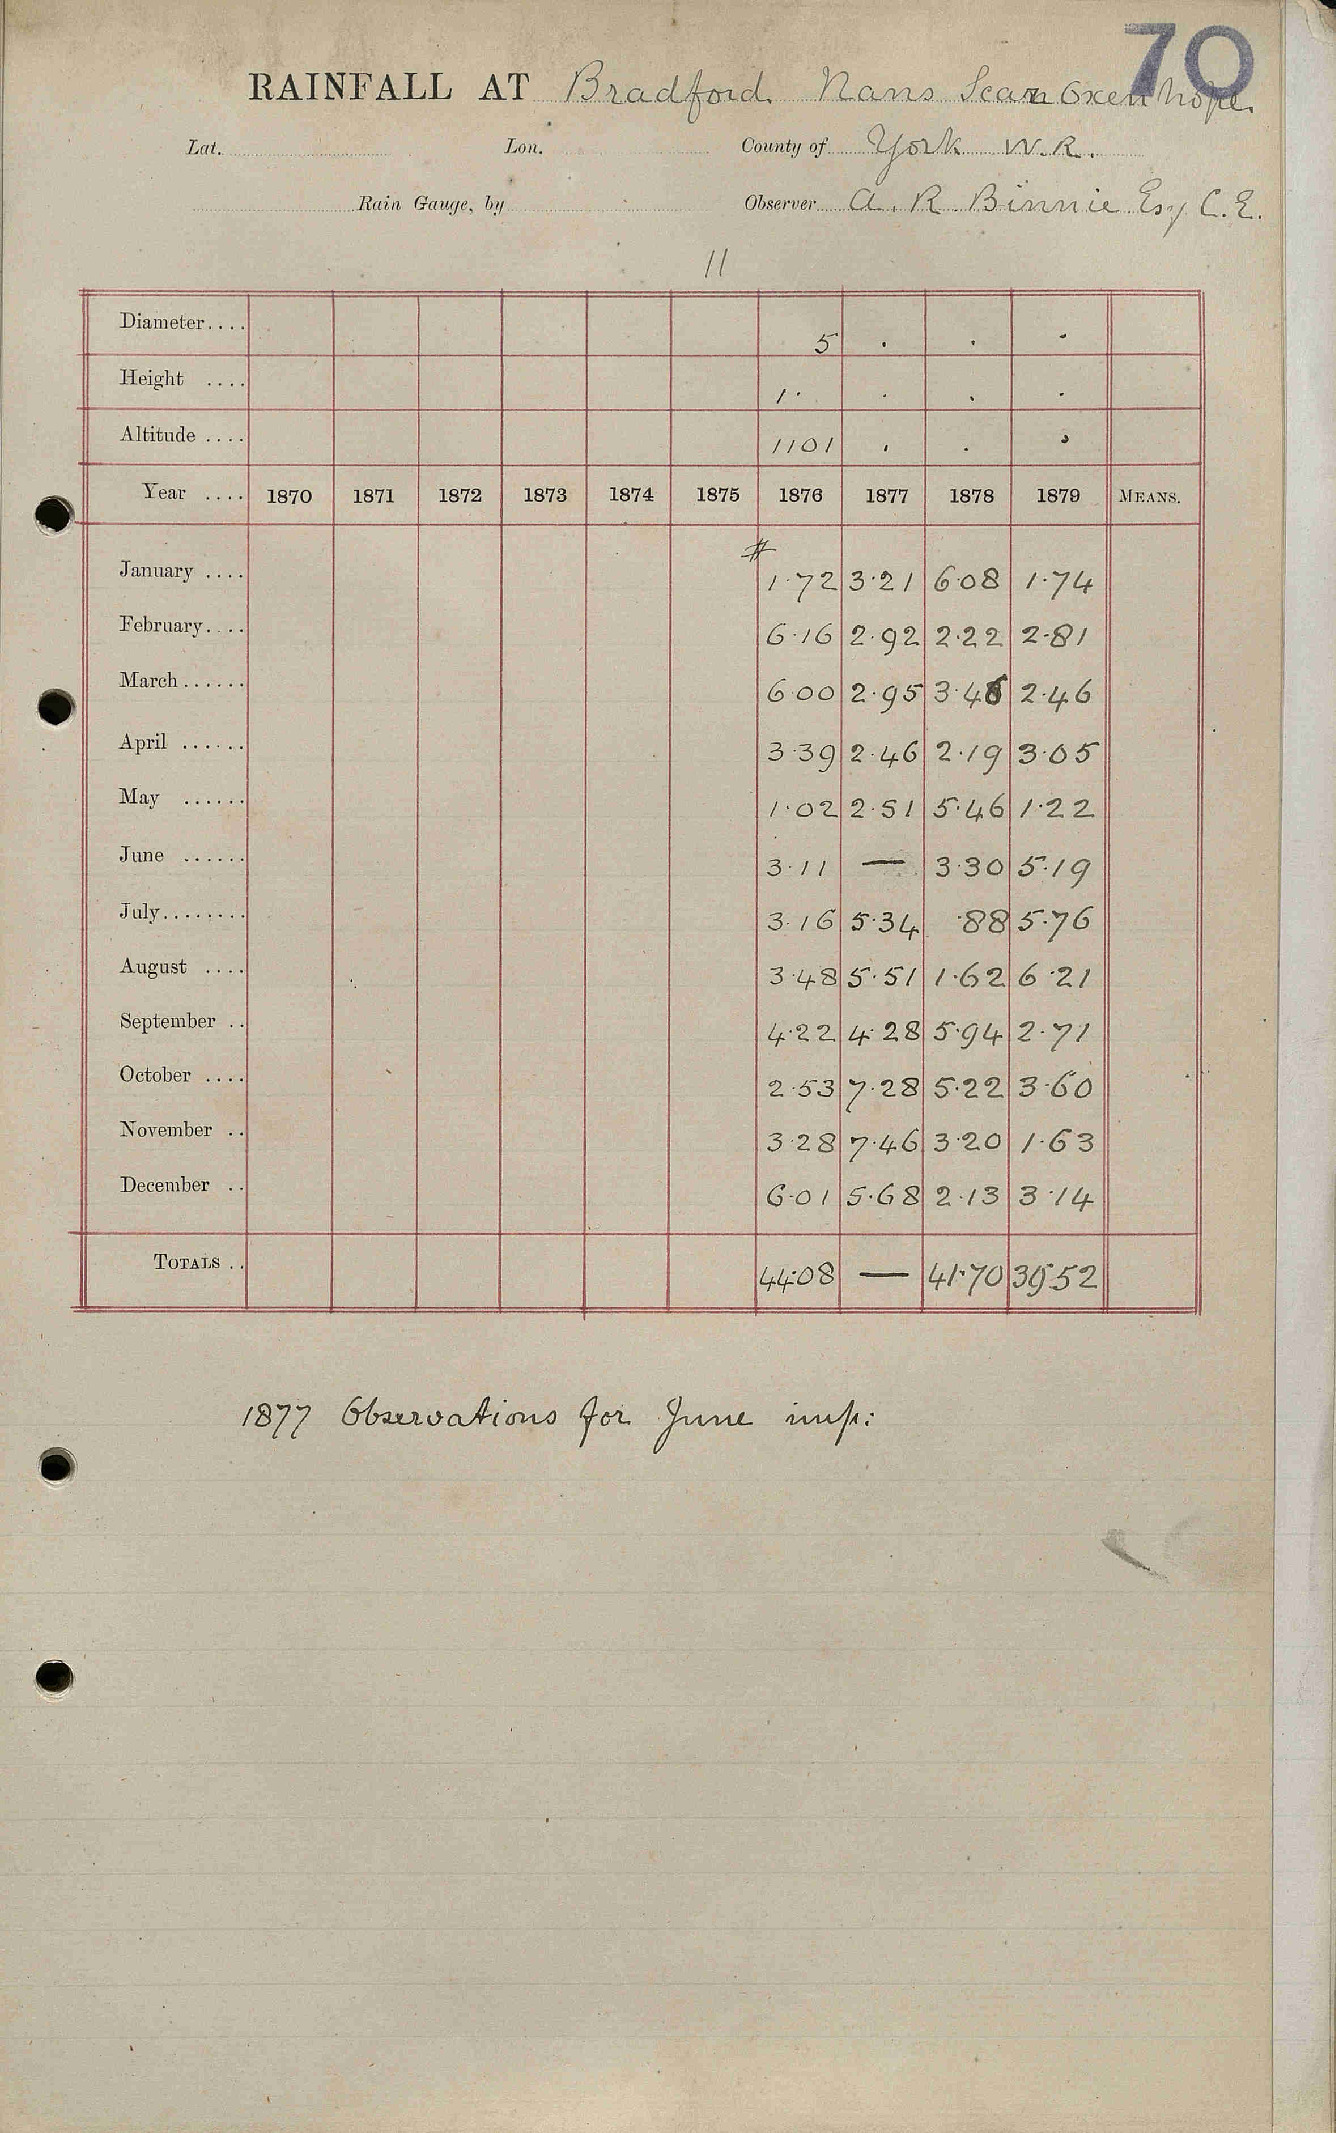 70
RAINFALL AT Bradford. Nans Scar Oxenhope.
Lat. Lon. County of York W.R.
Rain Gauge, by Observer A. R. Binnie Esq C.E.
11
Diameter.... 5 . . .
Height .... 1. . . .
Altitude .... 1101 . . .
Year .... 1870 1871 1872 1873 1874 1875 1876 1877 1878 1879 MEANS.
#
January .... 1.72 3.21 6.08 1.74
February.... 6.16 2.92 2.22 2.81
March...... 6.00 2.95 3.46 2.46
April ...... 3.39 2.46 2.19 3.05
May ...... 1.02 2.51 5.46 1.22
June ...... 3.11 — 3.30 5.19
July........ 3.16 5.34 .88 5.76
August .... 3.48 5.51 1.62 6.21
September .. 4.22 4.28 5.94 2.71
October .... 2.53 7.28 5.22 3.60
November .. 3.28 7.46 3.20 1.63
December .. 6.01 5.68 2.13 3.14
TOTALS .. 44.08 — 41.70 39.52
1877 Observations for June imp: